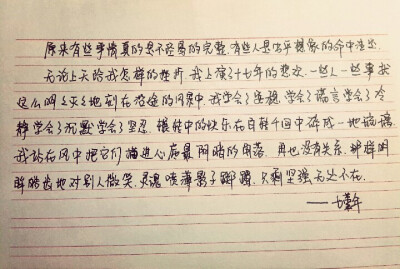 原来有些事情真的是不容易的完整,有些人是的命中注定
无论上天给我怎样的挫折,我上演了十七年的悲欢.一些人一些事就
这么明々灭々地刻在沿途的风景中.我学会了坚强.学会了谎言学会了冷
静学会了沉默学会了坚忍.辗转中的快乐在百转千回中碎成一地琉璃.
我站在风中把它们进心底最阴暗的角落.再也没有关系.那样明
眸皓齿地对别人微笑.灵魂喷薄影子踯躅.只剩坚强无处不在.
——七堇年